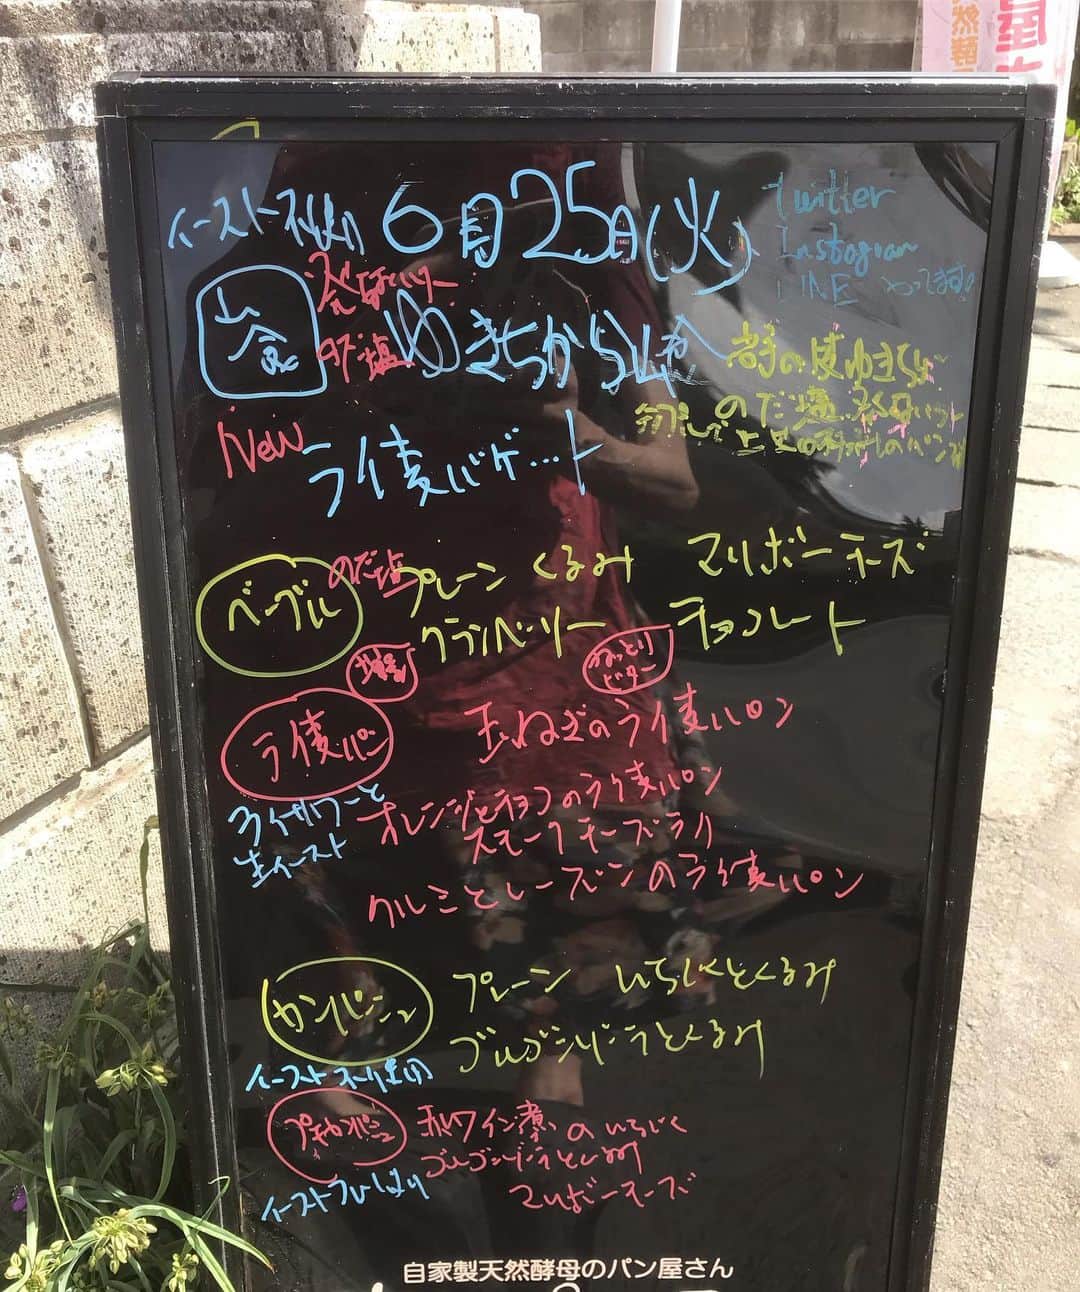 6月25日(火)
Twitter
Instagram
LINE やってます。
山食
発酵バター
のだ塩
ゆきちから山食
New
ライ麦バゲット
ベーグル
のだ塩
プレーン くるみ マリボーチーズ
クランベリー チョコレート
ねっとり
ビター
ライ麦パン
玉ねぎのライ麦パン
ライサワーと
生イースト
オレンジとチョコのライ麦パン
スモークチーズライ
クルミとレーズンのライ麦パン
カンパーニュ
プレーン いちじくとくるみ
ゴルゴンゾーラとくるみ
イースト不使用
プチカンパーニュ
赤ワイン煮のいちじく
ゴルゴンゾーラとくるみ
マリボーチーズ
自家製天然酵母のパン屋さん